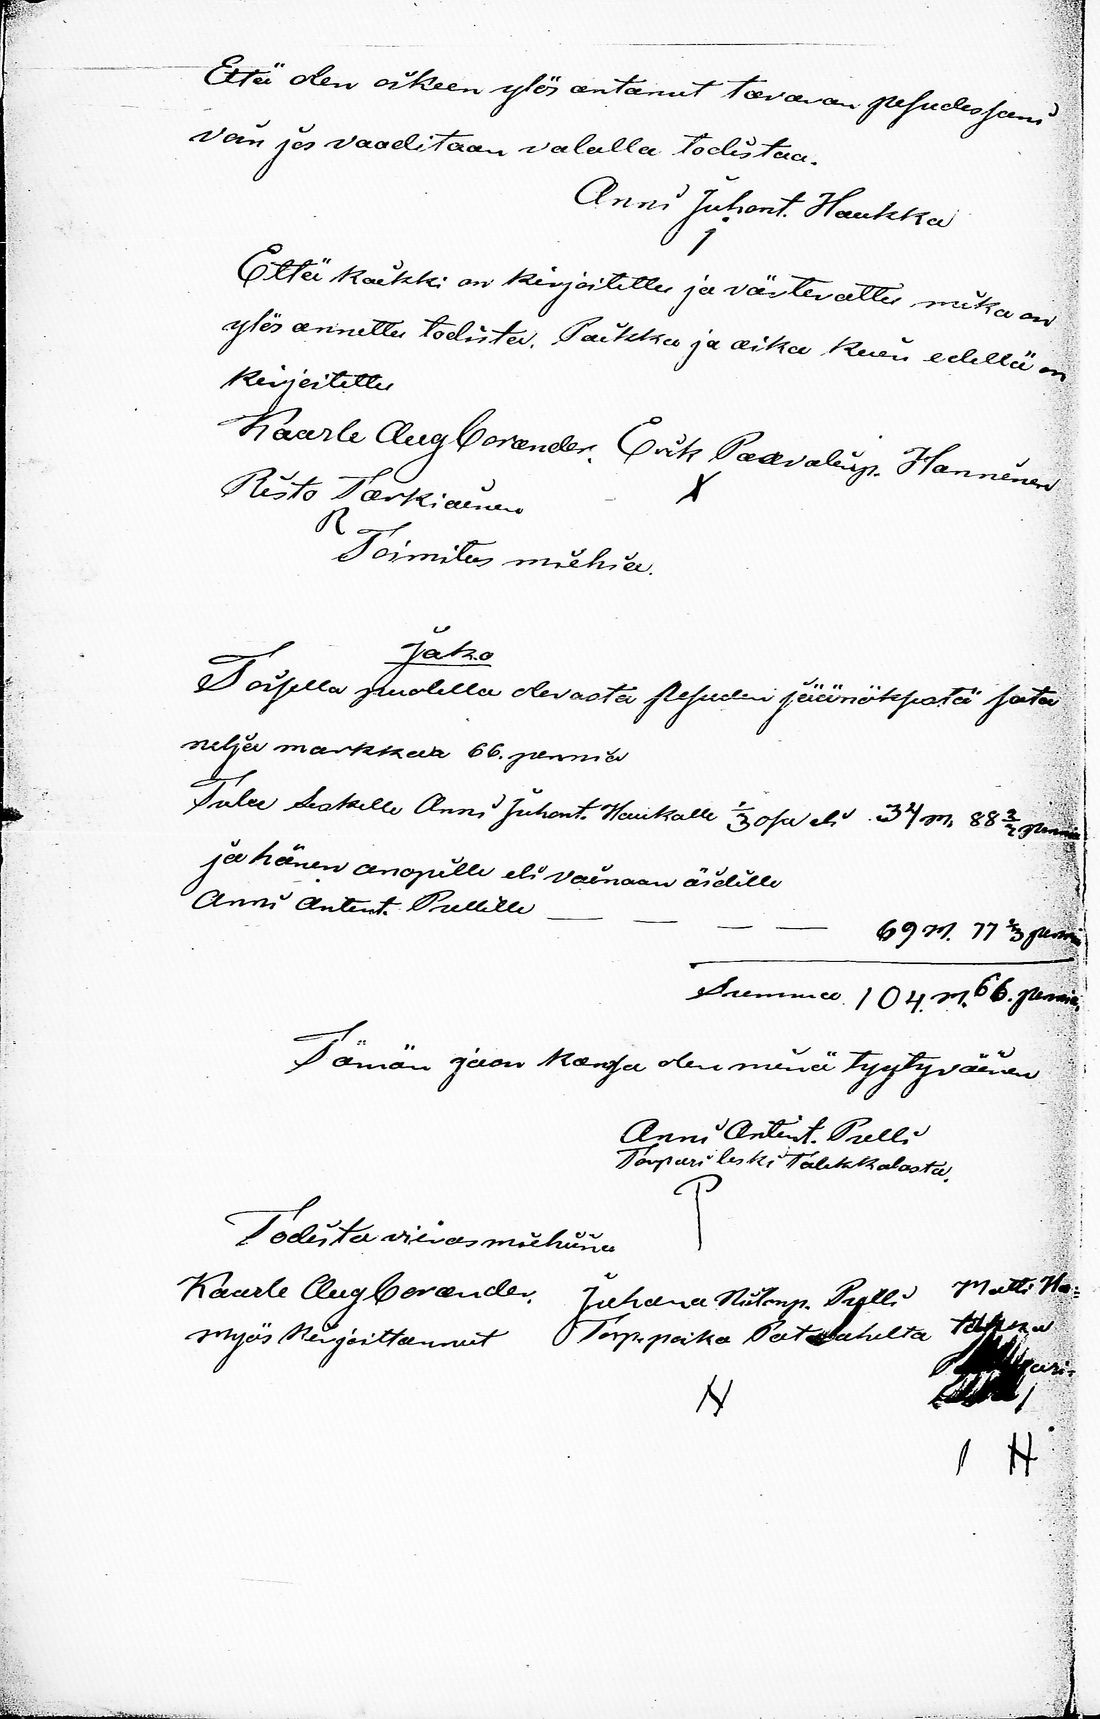 Että olen oikeen ylös antanut tavaran pesudessani
van jos vaaditaan valalla todistaa.
Anni Juhont. Haukka
Että kaikki on kirjoitettu ja värtevattu mika on
ylös annettu todista. Paikka ja aika kuin edellä on
kirjoitettu
Kaarle Aug Corander. Erik Paavalinp. Hannènen
Risto Tarkiainen
X
R
Toimitus miehia.
Jako
Toisella puolella olevasta pesuden jäänöksestä sata
neljä markkaa 66. penniä
Tulee Leskelle Anni Juhont. Haukalle 1/3 osa eli 34 m. 88 2/3 penniä
ja hänen anopille eli vainaan äidille
Anni Antent. Prellille — — — — 69 M. 77 1/3 penniä
Summa 104. M. 66. penniä.
Tämän jaon kansa olen minä tyytyväinen
Anni Antint. Prelli
Torpari leski Talikkalasta.
P
Todista vieras miehinä
Kaarle Aug Corander. Juhana Ristonp. Prylli Matti Ha=
Myös Kirjoittannut Torp. poika
N
H